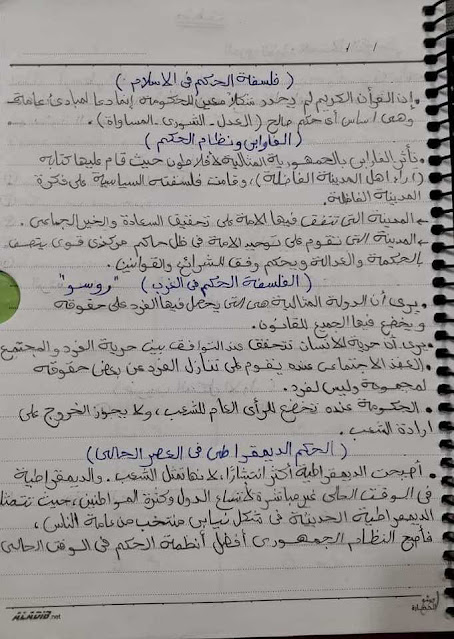 ( فلسفة الحكم فى الاسلام )
• إن القرأن الكريم لم يحدد شكلا معين للحكومة إنما دعا لمبادئ عامة
وهى اساس أى حكم صالح ( العدل - الشورى - المساواة ) .
( الفارابى ونظام الحكم )
• تأثر الفارابى بالجمهورية المثالية لأفلاطون حيث قام عليها كتابه
( آراء أهل المدينة الفاضلة ) ، وقامت فلسفته السياسية على فكرة
المدينة الفاضلة .
← المدينة التى تتفق فيها الامة على تحقيق السعادة والخير الجماعى .
← المدينة التى تقوم على توحيد الامة فى ظل حاكم مركزى قوى يتصف
بالحكمة والعدالة ويحكم وفق الشرائع والقوانين .
( الفلسفة الحكم فى الغرب ) " روسو "
• يرى أن الدولة المثالية هى التى يحصل فيها الفرد على حقوقه
و يخضع فيها الجميع للقانون .
• يرى أن حرية الانسان تتحقق عند التوافق بين حرية الفرد والمجتمع
• العقد الاجتماعى عنده يقوم على تنازل الفرد عن بعض حقوقه
لمجموعة وليس لفرد .
• الحكومة عنده تخضع للرأى العام للشعب ، ولا يجوز الخروج على
ارادة الشعب .
( الحكم الديمقراطى فى العصر الحالى )
• أصبحت الديمقراطية أكثر انتشارًا ، لانها تمثل الشعب . والديمقراطية
فى الوقت الحالى غير مباشرة لاتساع الدول وكثرة المواطنين ، حيث تتمثل
الديمقراطية الحديثة فى شكل نيابى منتخب من عامة الناس ،
فأصبح النظام الجمهورى أفضل أنظمة الحكم فى الوقت الحالى